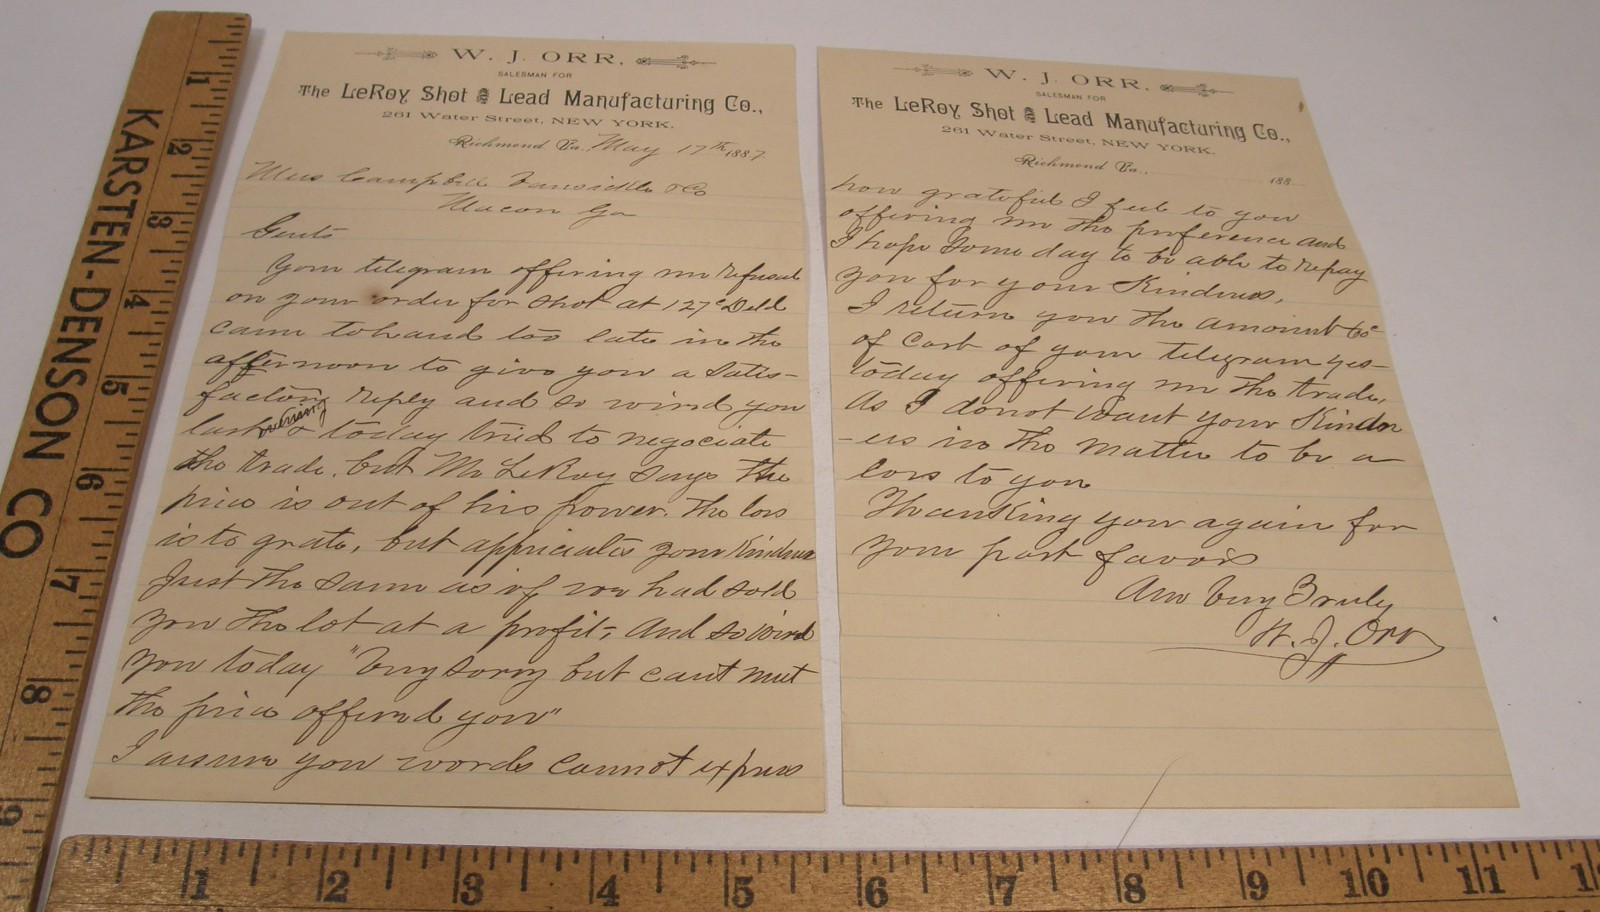 W. J. ORR.
SALESMAN FOR
The LeRoy Shot & Lead Manufacturing Co.,
261 Water Street, NEW YORK.
Richmond Va., May 17th 1887
Mess Campbell & Co
Macon Ga
Gents
Your telegram offering me refusal
on your order for shot at 127c Deld
came to hand too late in the
afternoon to give you a satis-
factory reply and so wired you
last evening & today tried to negociate
the trade. but Mr LeRoy says the
price is out of his power. The loss
is to grate, but appriciates your Kindness
Just the same as if we had sold
you the lot at a profit, and so wired
you today "Very sorry but cant meet
the price offered you"
I assure you words cannot express
W. J. ORR.
SALESMAN FOR
The LeRoy Shot & Lead Manufacturing Co.,
261 Water Street, NEW YORK.
Richmond Va., 188
how grateful I feel to you
offering me the preference and
I hope some day to be able to repay
you for your Kindness,
I return you the amount
of cost of your telegram yes-
today offering me the trade,
As I donot want your Kindn
-ess in the matter to be a
loss to you
Thanking you again for
your past favors
Am Very Truly
W. J. Orr
KARSTEN-DENSON CO
1 2 3 4 5 6 7 8 9
1 2 3 4 5 6 7 8 9 10 11